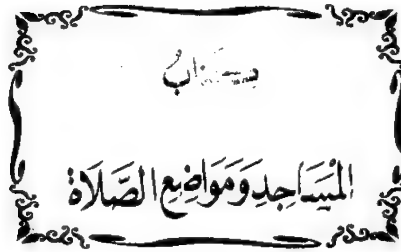 كتابُ
المَسَاجِدِ وَمَوَاضِعِ الصَّلَاةِ